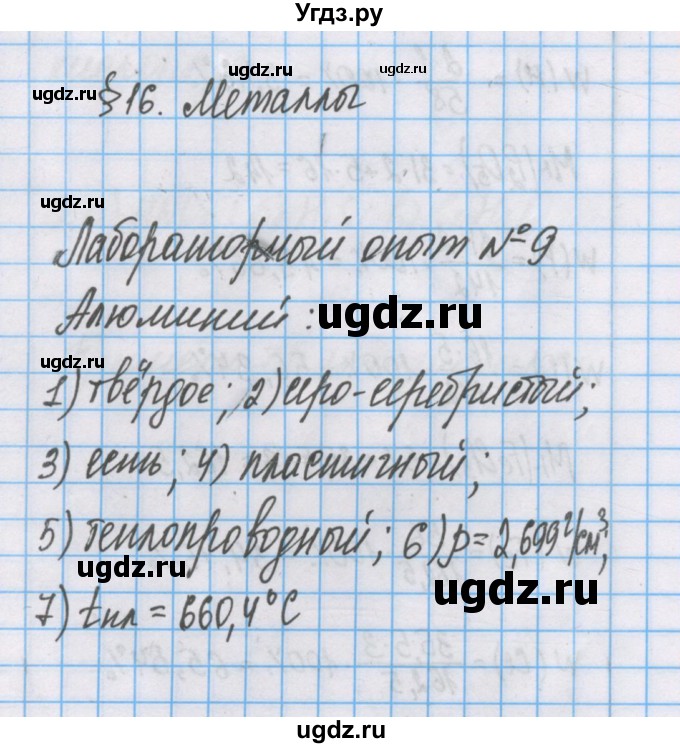 Угдз.ру
ugdz.ru ugdz.ru ugdz.ru
§ 16. Металлы
ugdz.ru
Лабораторный опыт № 9
Алюминий : ugdz.ru
1) твёрдое; 2) серо-серебристый;
3) есть; 4) пластичный;
5) теплопроводный; 6) ρ = 2,699 г/см³;
ugdz.ru ugdz.ru
7) tпл = 660,4°C
ugdz.ru